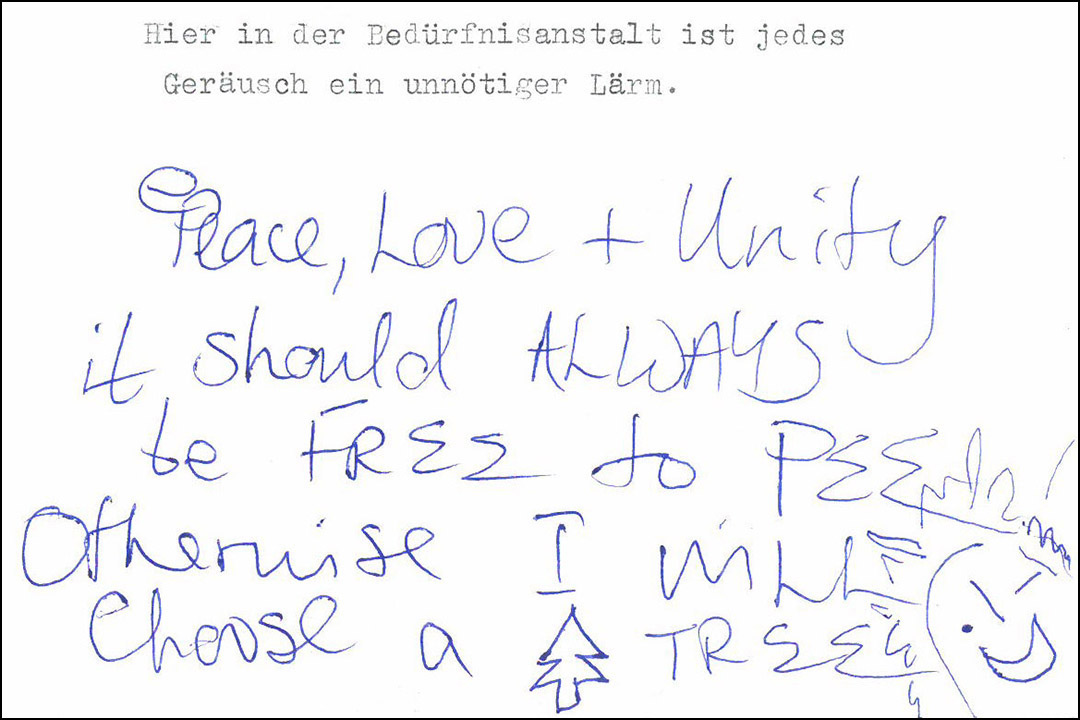 Hier in der Bedürfnisanstalt ist jedes
Geräusch ein unnötiger Lärm.
Peace, Love + Unity
it should ALWAYS
be FREE to PEE
Otherwise I WILL
Choose a TREE